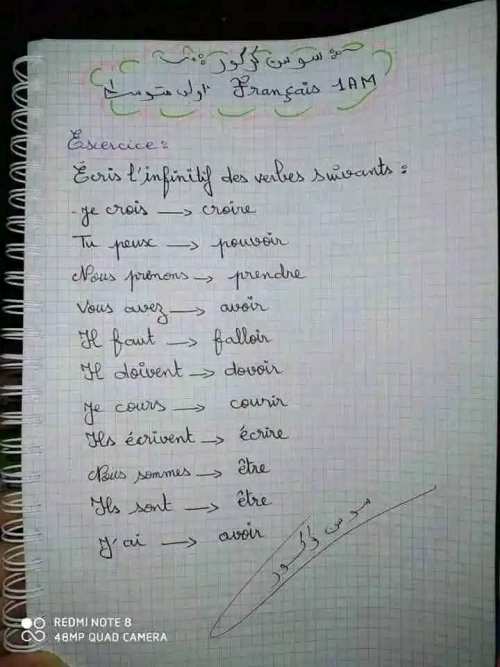 سوس ڭولور
اولى متوسط Français 1AM
Exercice :
Écris l'infinitif des verbes suivants :
- Je crois → croire
Tu peux → pouvoir
Nous prenons → prendre
Vous avez → avoir
Il faut → falloir
Il doivent → dovoir
Je cours → courir
Ils écrivent → écrire
Nous sommes → être
Ils sont → être
J'ai → avoir
REDMI NOTE 8
48MP QUAD CAMERA